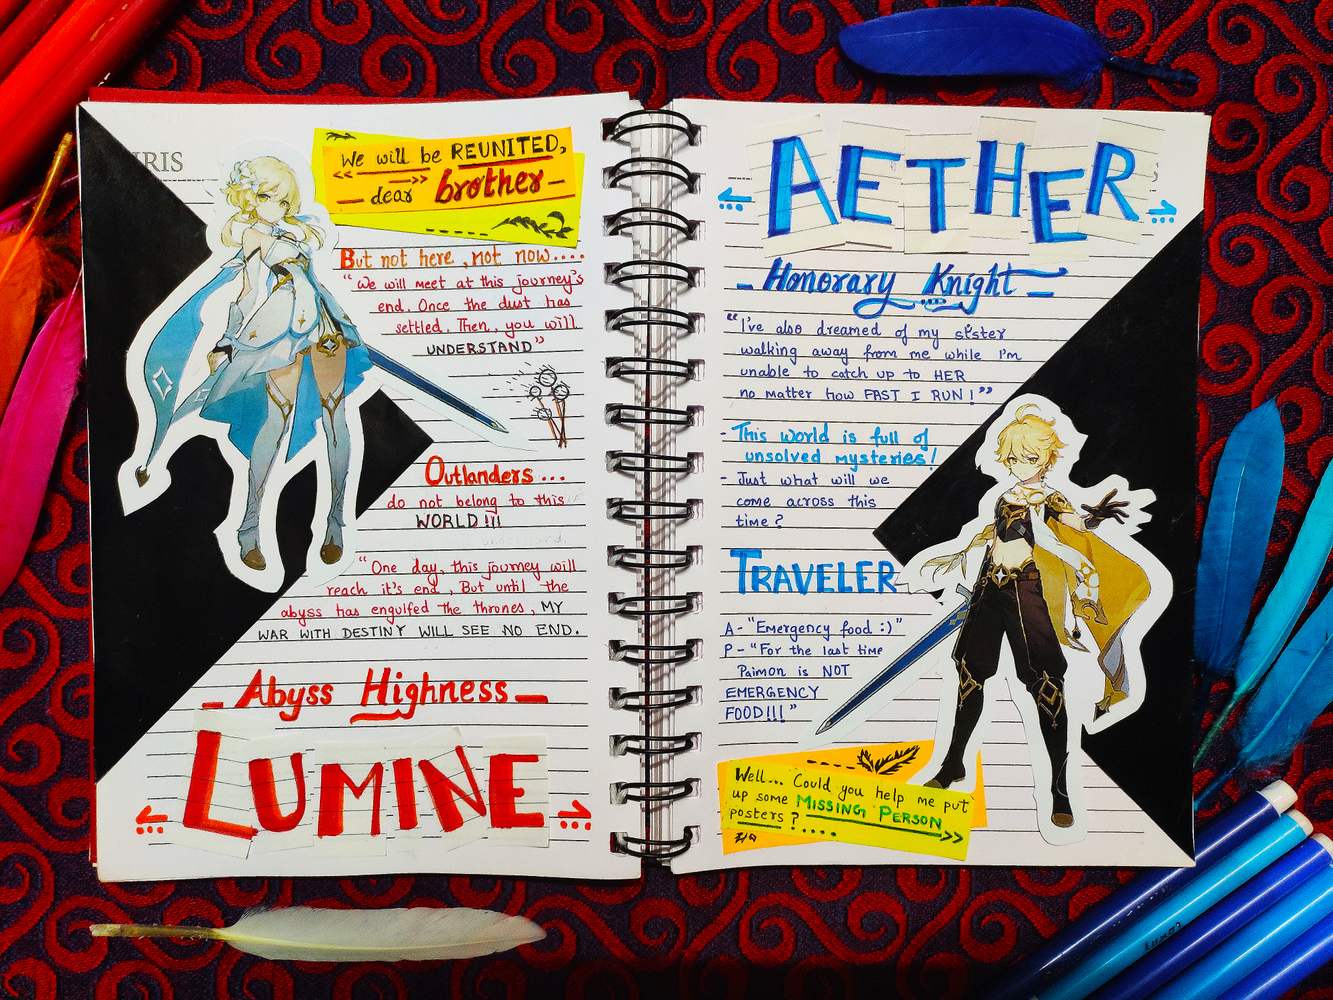 IRIS
We will be REUNITED,
<< —>> dear brother —
But not here, not now....
"We will meet at this journey's
end. Once the dust has
settled. Then, you will
UNDERSTAND"
Outlanders...
do not belong to this
WORLD!!!
"One day, this journey will
reach it's end, But until the
abyss has engulfed the thrones, MY
WAR WITH DESTINY WILL SEE NO END.
- Abyss Highness -
LUMINE
AETHER
- Honorary Knight -
"I've also dreamed of my sister
walking away from me while I'm
unable to catch up to HER
no matter how FAST I RUN!"
- This world is full of
unsolved mysteries!
- Just what will we
come across this
time?
TRAVELER
A - "Emergency food :)"
P - "For the last time
Paimon is NOT
EMERGENCY
FOOD!!!"
Well... Could you help me put
up some MISSING PERSON
posters?.... >>